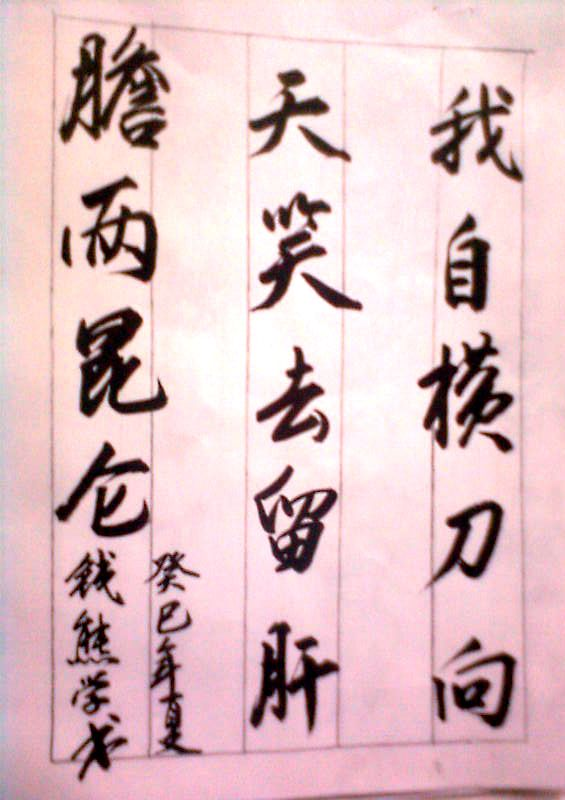 我自横刀向
天笑去留肝
胆两昆仑
癸巳年夏
钱熊学书